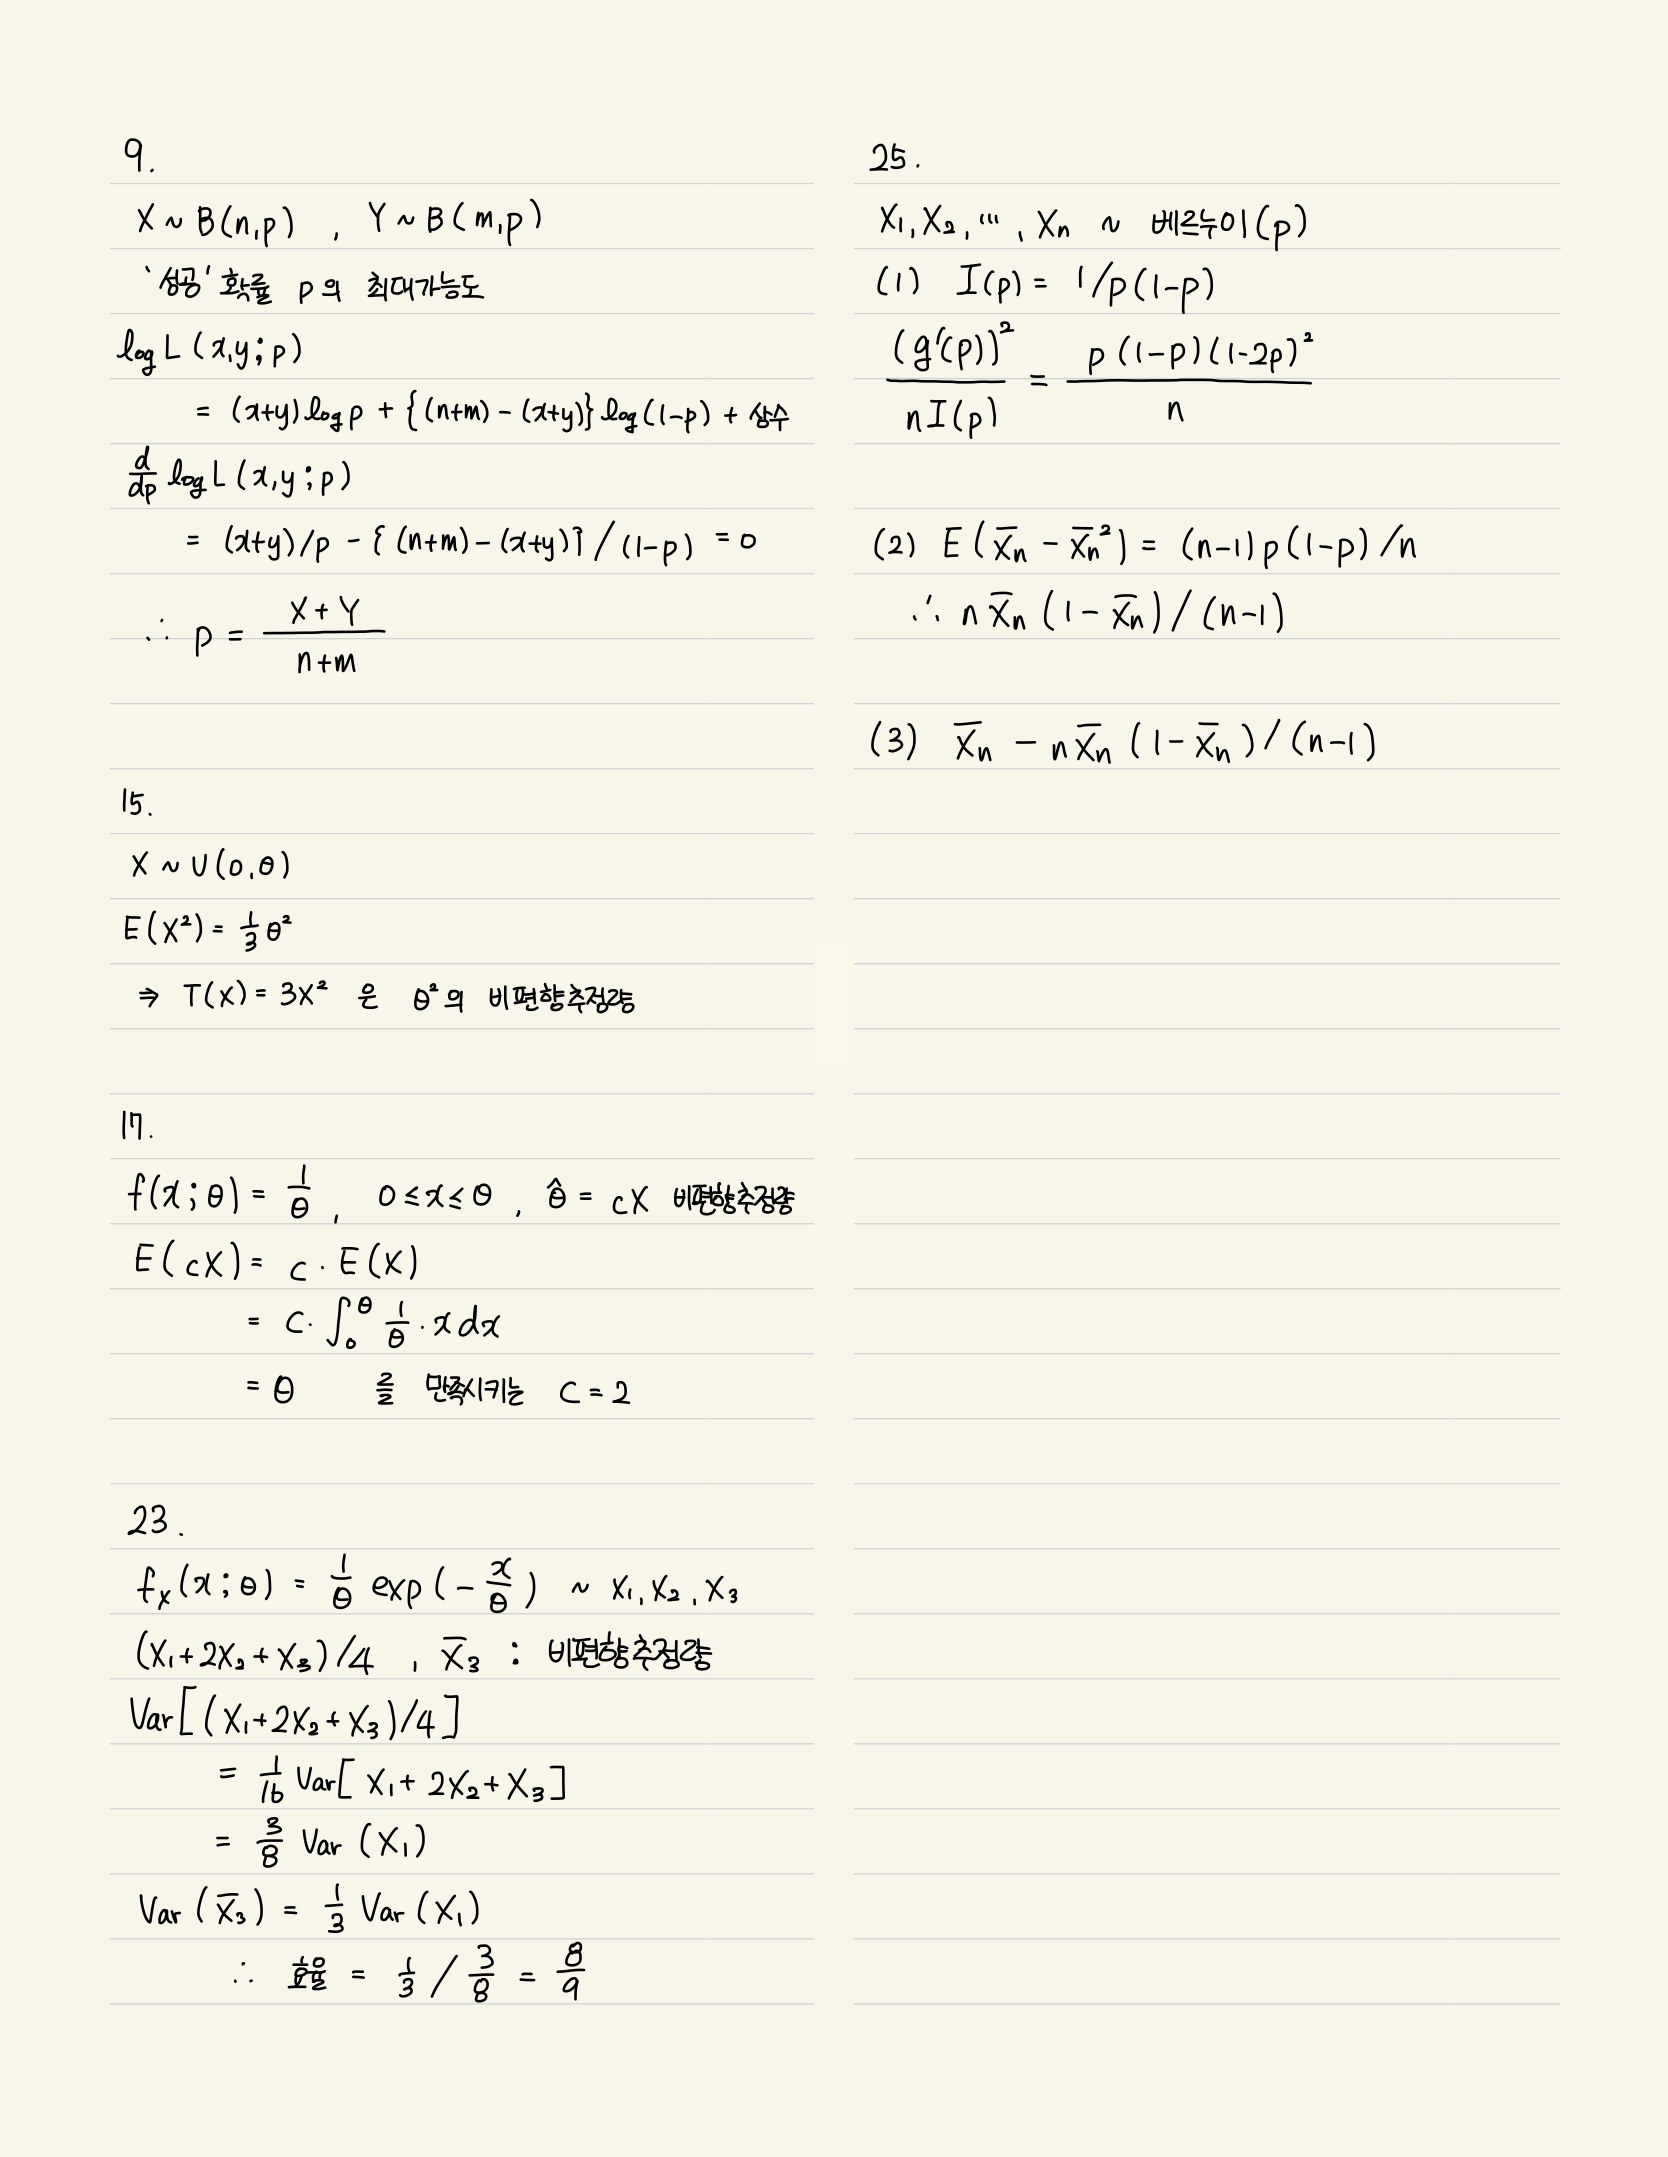 9.
X ~ B(n,p) , Y ~ B(m,p)
'성공' 확률 p의 최대가능도
log L (x,y; p)
= (x+y) log p + {(n+m) - (x+y)} log(1-p) + 상수
d/dp log L (x,y; p)
= (x+y)/p - {(n+m) - (x+y)} / (1-p) = 0
∴ p = (X+Y)/(n+m)
15.
X ~ U(0,θ)
E(X²) = 1/3 θ²
⇒ T(X) = 3X² 은 θ²의 비편향추정량
17.
f(x;θ) = 1/θ , 0≤x≤θ , θ̂ = cX 비편향추정량
E(cX) = c · E(X)
= c · ∫₀^θ 1/θ · x dx
= θ 를 만족시키는 C = 2
23.
f_X(x;θ) = 1/θ exp(- x/θ) ~ X₁, X₂, X₃
(X₁+2X₂+X₃)/4 , X̄₃ : 비편향추정량
Var[(X₁+2X₂+X₃)/4]
= 1/16 Var[X₁+2X₂+X₃]
= 3/8 Var(X₁)
Var(X̄₃) = 1/3 Var(X₁)
∴ 효율 = 1/3 / 3/8 = 8/9
25.
X₁, X₂, ···, Xₙ ~ 베르누이(p)
(1) I(p) = 1/p(1-p)
(g'(p))² / nI(p) = p(1-p)(1-2p)² / n
(2) E(X̄ₙ - X̄ₙ²) = (n-1)p(1-p)/n
∴ nX̄ₙ(1-X̄ₙ)/(n-1)
(3) X̄ₙ - nX̄ₙ(1-X̄ₙ)/(n-1)